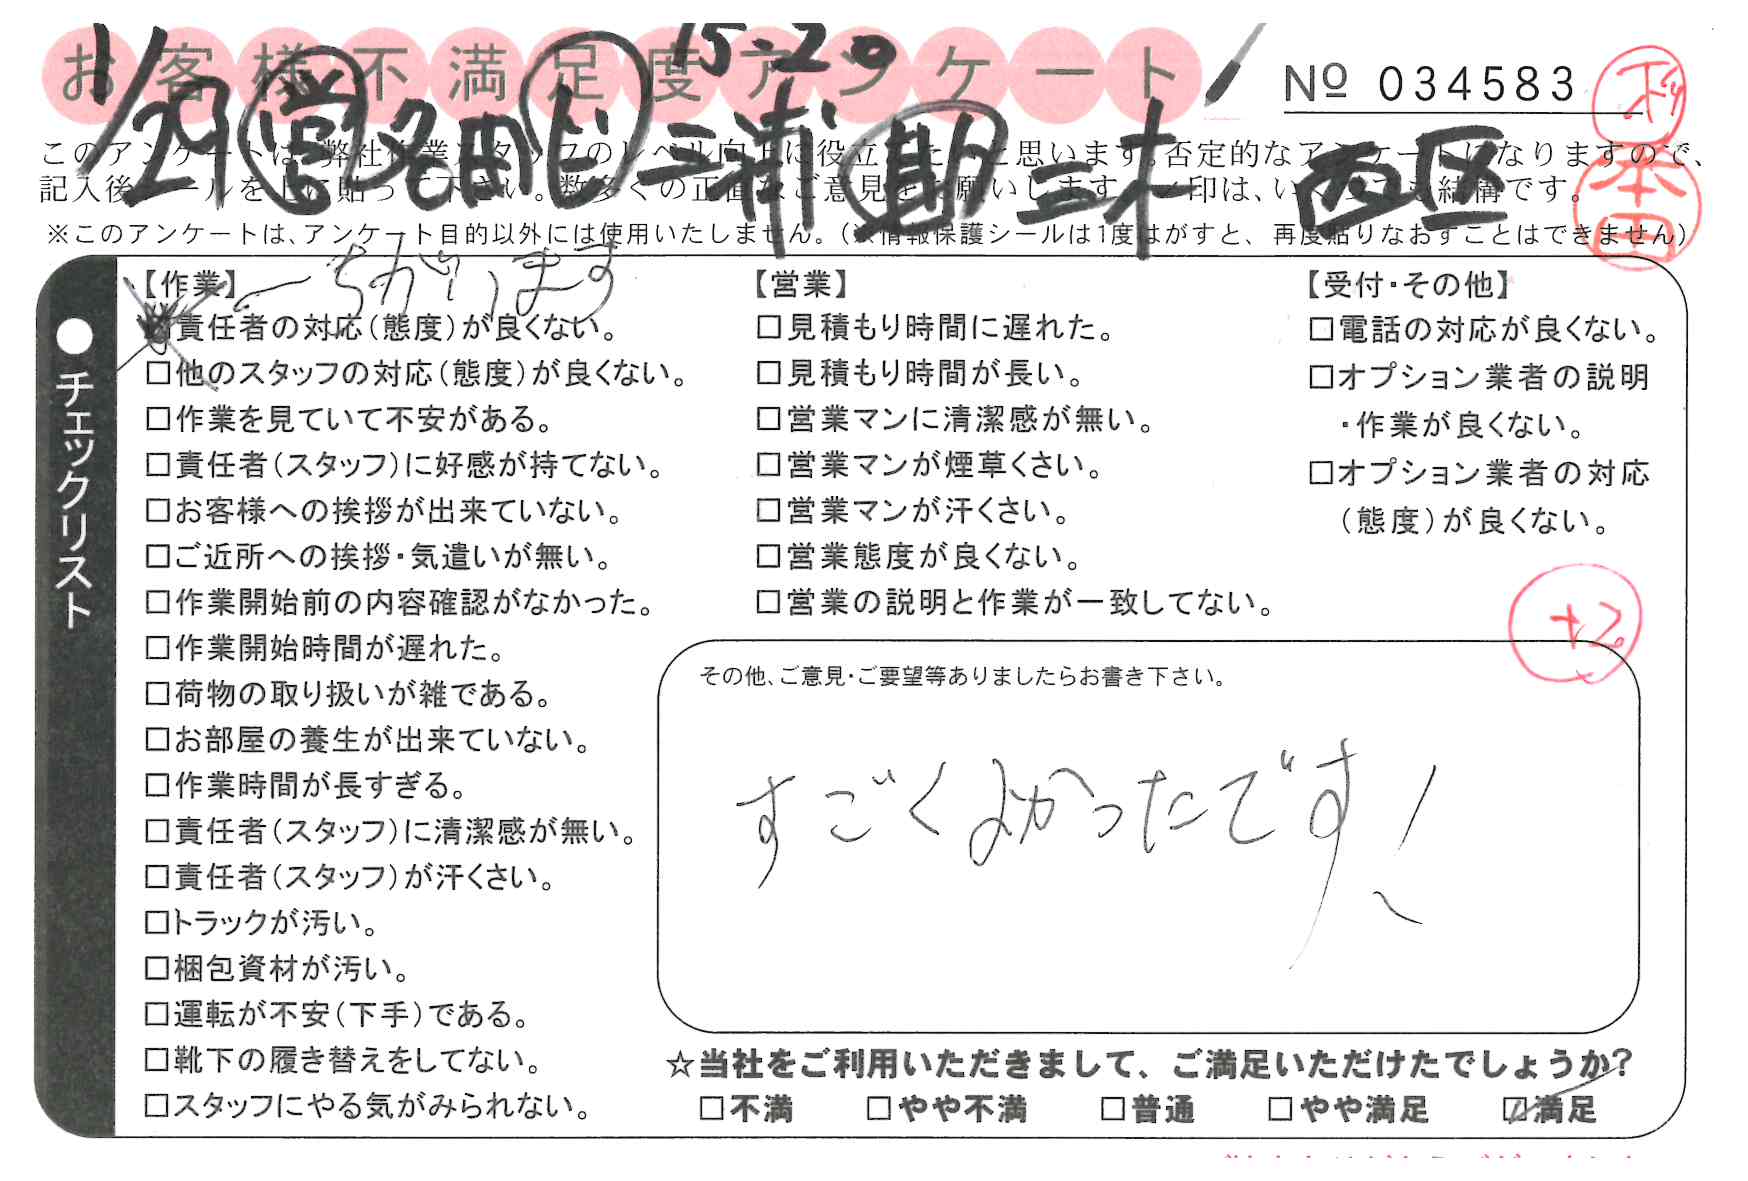 お客様不満足度アンケート
15-20
№ 034583
1/29 営 名田 ド 三浦 助 三木 西区
本田
このアンケートは、弊社作業スタッフのレベル向上に役立てたいと思います。否定的なアンケートになりますので、
記入後シールを上に貼って下さい。数多くの正直なご意見をお願いします。✓印は、いくつでも結構です。
※このアンケートは、アンケート目的以外には使用いたしません。(※情報保護シールは1度はがすと、再度貼りなおすことはできません)
●チェックリスト
【作業】
←ちがいます
□責任者の対応(態度)が良くない。
□他のスタッフの対応(態度)が良くない。
□作業を見ていて不安がある。
□責任者(スタッフ)に好感が持てない。
□お客様への挨拶が出来ていない。
□ご近所への挨拶・気遣いが無い。
□作業開始前の内容確認がなかった。
□作業開始時間が遅れた。
□荷物の取り扱いが雑である。
□お部屋の養生が出来ていない。
□作業時間が長すぎる。
□責任者(スタッフ)に清潔感が無い。
□責任者(スタッフ)が汗くさい。
□トラックが汚い。
□梱包資材が汚い。
□運転が不安(下手)である。
□靴下の履き替えをしてない。
□スタッフにやる気がみられない。
【営業】
□見積もり時間に遅れた。
□見積もり時間が長い。
□営業マンに清潔感が無い。
□営業マンが煙草くさい。
□営業マンが汗くさい。
□営業態度が良くない。
□営業の説明と作業が一致してない。
【受付・その他】
□電話の対応が良くない。
□オプション業者の説明
・作業が良くない。
□オプション業者の対応
(態度)が良くない。
+2
その他、ご意見・ご要望等ありましたらお書き下さい。
すごくよかったです!
☆当社をご利用いただきまして、ご満足いただけたでしょうか?
□不満 □やや不満 □普通 □やや満足 ☑満足